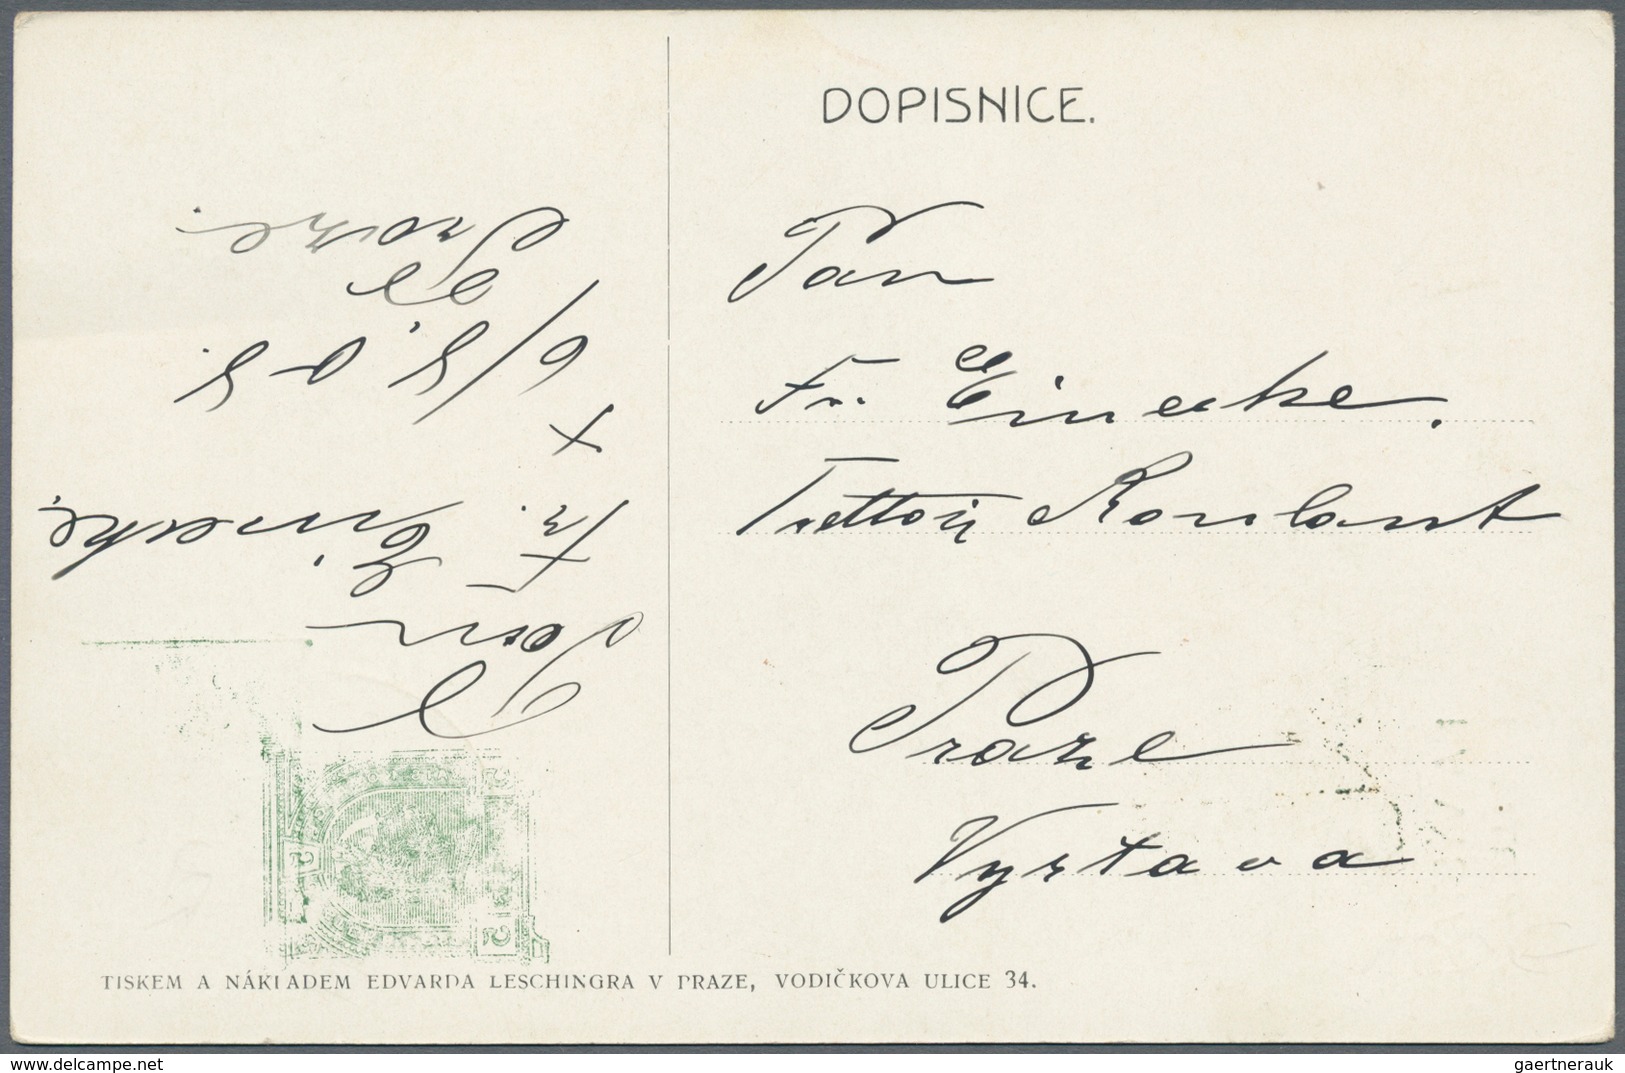 DOPISNICE.
Pan
Fr. Einecke.
Praze
Vystava
Pan
Fr. Einecke.
+
6/9. 09.
Praze.
5
5
TISKEM A NÁKLADEM EDVARDA LESCHINGRA V PRAZE, VODIČKOVA ULICE 34.
www.delcampe.net
gaertnerauk